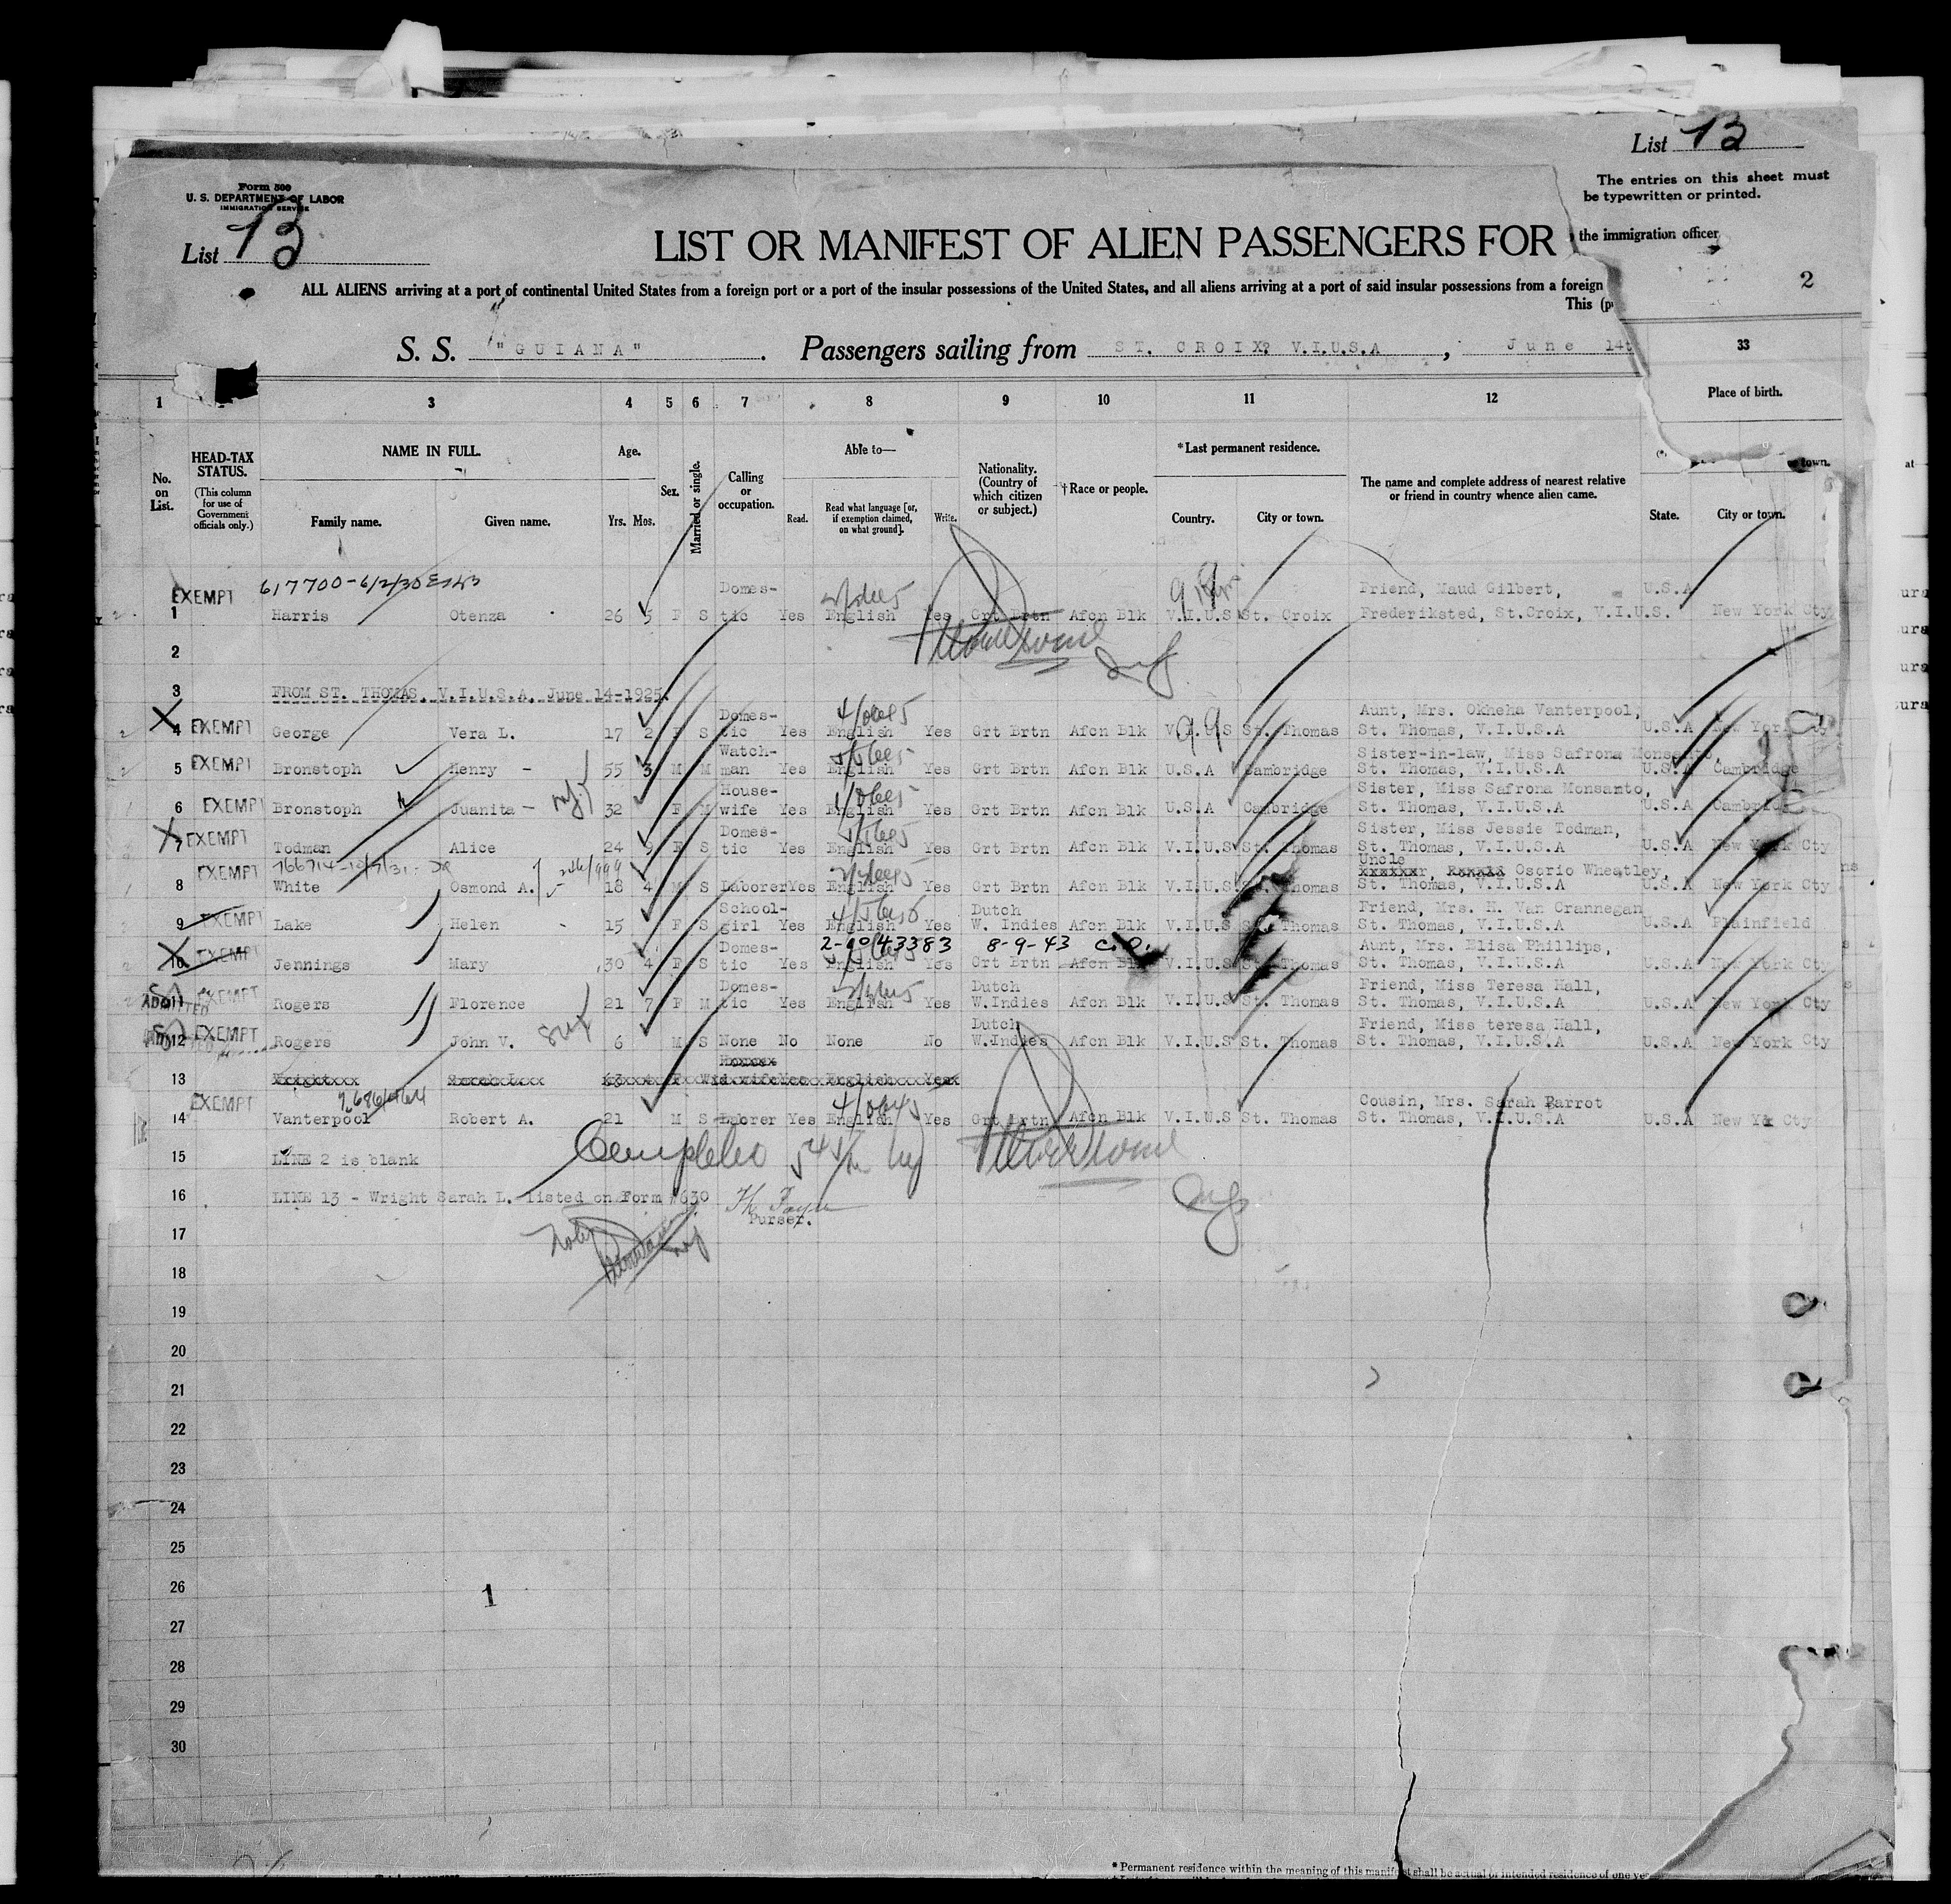 List 13
The entries on this sheet must
be typewritten or printed.
Form 500
U. S. DEPARTMENT OF LABOR
IMMIGRATION SERVICE
List 13
LIST OR MANIFEST OF ALIEN PASSENGERS FOR
the immigration officer
2
ALL ALIENS arriving at a port of continental United States from a foreign port or a port of the insular possessions of the United States, and all aliens arriving at a port of said insular possessions from a foreign
This
S. S. "GUIANA". Passengers sailing from ST. CROIX? V.I.U.S.A, June 14t
33
Place of birth.
1 3 4 5 6 7 8 9 10 11 12
No. on List.
HEAD-TAX STATUS.
(This column for use of Government officials only.)
NAME IN FULL.
Family name. Given name.
Age.
Yrs. Mos.
Sex.
Married or single.
Calling or occupation.
Able to—
Read. Read what language [or, if exemption claimed, on what ground]. Write.
Nationality. (Country of which citizen or subject.)
†Race or people.
*Last permanent residence.
Country. City or town.
The name and complete address of nearest relative or friend in country whence alien came.
State. City or town.
EXEMPT 617700-6/2/30 Domes- Friend, Maud Gilbert, U.S.A
1 Harris Otenza 26 5 F S tic Yes English Yes Grt Brtn Afcn Blk V.I.U.S St. Croix Frederiksted, St.Croix, V.I.U.S. New York Cty
2
3 FROM ST. THOMAS, V.I.U.S.A. June 14-1925.
Domes- Aunt, Mrs. Okheha Vanterpool,
4 EXEMPT George Vera L. 17 2 F S tic Yes English Yes Grt Brtn Afcn Blk V.I.U.S St. Thomas St. Thomas, V.I.U.S.A U.S.A New York
Watch- Sister-in-law, Miss Safrona Monsanto,
5 EXEMPT Bronstoph Henry - 55 3 M M man Yes English Yes Grt Brtn Afcn Blk U.S.A Cambridge St. Thomas, V.I.U.S.A U.S.A Cambridge
House- Sister, Miss Safrona Monsanto,
6 EXEMPT Bronstoph Juanita - 32 F M wife Yes English Yes Grt Brtn Afcn Blk U.S.A Cambridge St. Thomas, V.I.U.S.A U.S.A Cambridge
Domes- Sister, Miss Jessie Todman,
7 EXEMPT Todman Alice 24 9 F S tic Yes English Yes Grt Brtn Afcn Blk V.I.U.S St. Thomas St. Thomas, V.I.U.S.A U.S.A New York Cty
766714-10/7/31 Uncle Osorio Wheatley,
8 EXEMPT White Osmond A. 18 4 M S Laborer Yes English Yes Grt Brtn Afcn Blk V.I.U.S St. Thomas St. Thomas, V.I.U.S.A U.S.A New York Cty
School- Dutch Friend, Mrs. H. Van Crannegan
9 EXEMPT Lake Helen - 15 F S girl Yes English Yes W. Indies Afcn Blk V.I.U.S St. Thomas St. Thomas, V.I.U.S.A U.S.A Plainfield
Domes- 2-6043383 8-9-43 Aunt, Mrs. Elisa Phillips,
10 EXEMPT Jennings Mary 30 4 F S tic Yes English Yes Grt Brtn Afcn Blk V.I.U.S St. Thomas St. Thomas, V.I.U.S.A U.S.A New York Cty
Domes- Dutch Friend, Miss Teresa Hall,
ADMITTED 11 EXEMPT Rogers Florence 21 7 F M tic Yes English Yes W.Indies Afcn Blk V.I.U.S St. Thomas St. Thomas, V.I.U.S.A U.S.A New York Cty
Dutch Friend, Miss teresa Hall,
12 EXEMPT Rogers John V. 6 M S None No None No W.Indies Afcn Blk V.I.U.S St. Thomas St. Thomas, V.I.U.S.A U.S.A New York Cty
13
EXEMPT Cousin, Mrs. Sarah Parrot
14 Vanterpool Robert A. 21 M S Laorer Yes English Yes Grt Brtn Afcn Blk V.I.U.S St. Thomas St. Thomas, V.I.U.S.A U.S.A New Yk Cty
15 LINE 2 is blank
16 LINE 13 - Wright Sarah L. listed on Form #630
Purser.
17
18
19
20
21
22
23
24
25
26 1
27
28
29
30
*Permanent residence within the meaning of this manifest shall be actual or intended residence of one ye